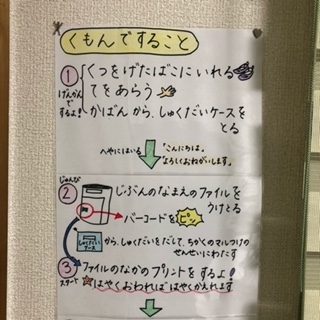 くもんですること
① くつをげたばこにいれる
げんかんでするよ！
てをあらう
かばんから、しゅくだいケースをとる
へやにはいる
「こんにちは。
よろしくおねがいします。」
じゅんび
② じぶんのなまえのファイルをうけとる
バーコードをピッ
しゅくだいケース
から、しゅくだいをだして、ちかくのマルつけのせんせいにわたす
③ ファイルのなかのプリントをするよ！
スタート
はやくおわればはやくかえれます